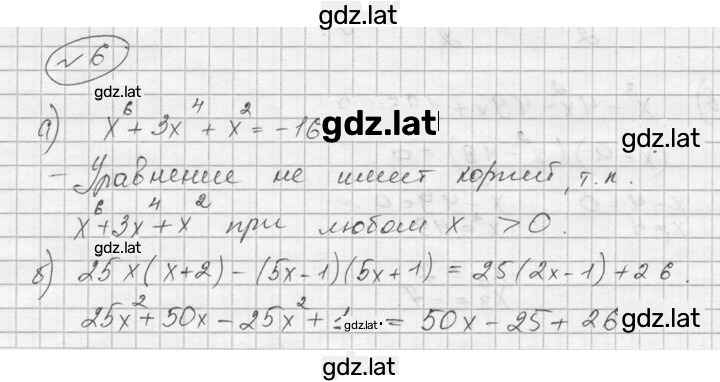 gdz.lat
№ 6
gdz.lat
а) x⁶ + 3x⁴ + x² = -16 gdz.lat
gdz.lat
– Уравнение не имеет корней, т.к.
x⁶ + 3x⁴ + x² при любом x > 0.
gdz.lat gdz.lat
б) 25x(x+2) - (5x-1)(5x+1) = 25(2x-1) + 26.
25x² + 50x - 25x² + gdz.lat = 50x - 25 + 26 gdz.lat
gdz.lat